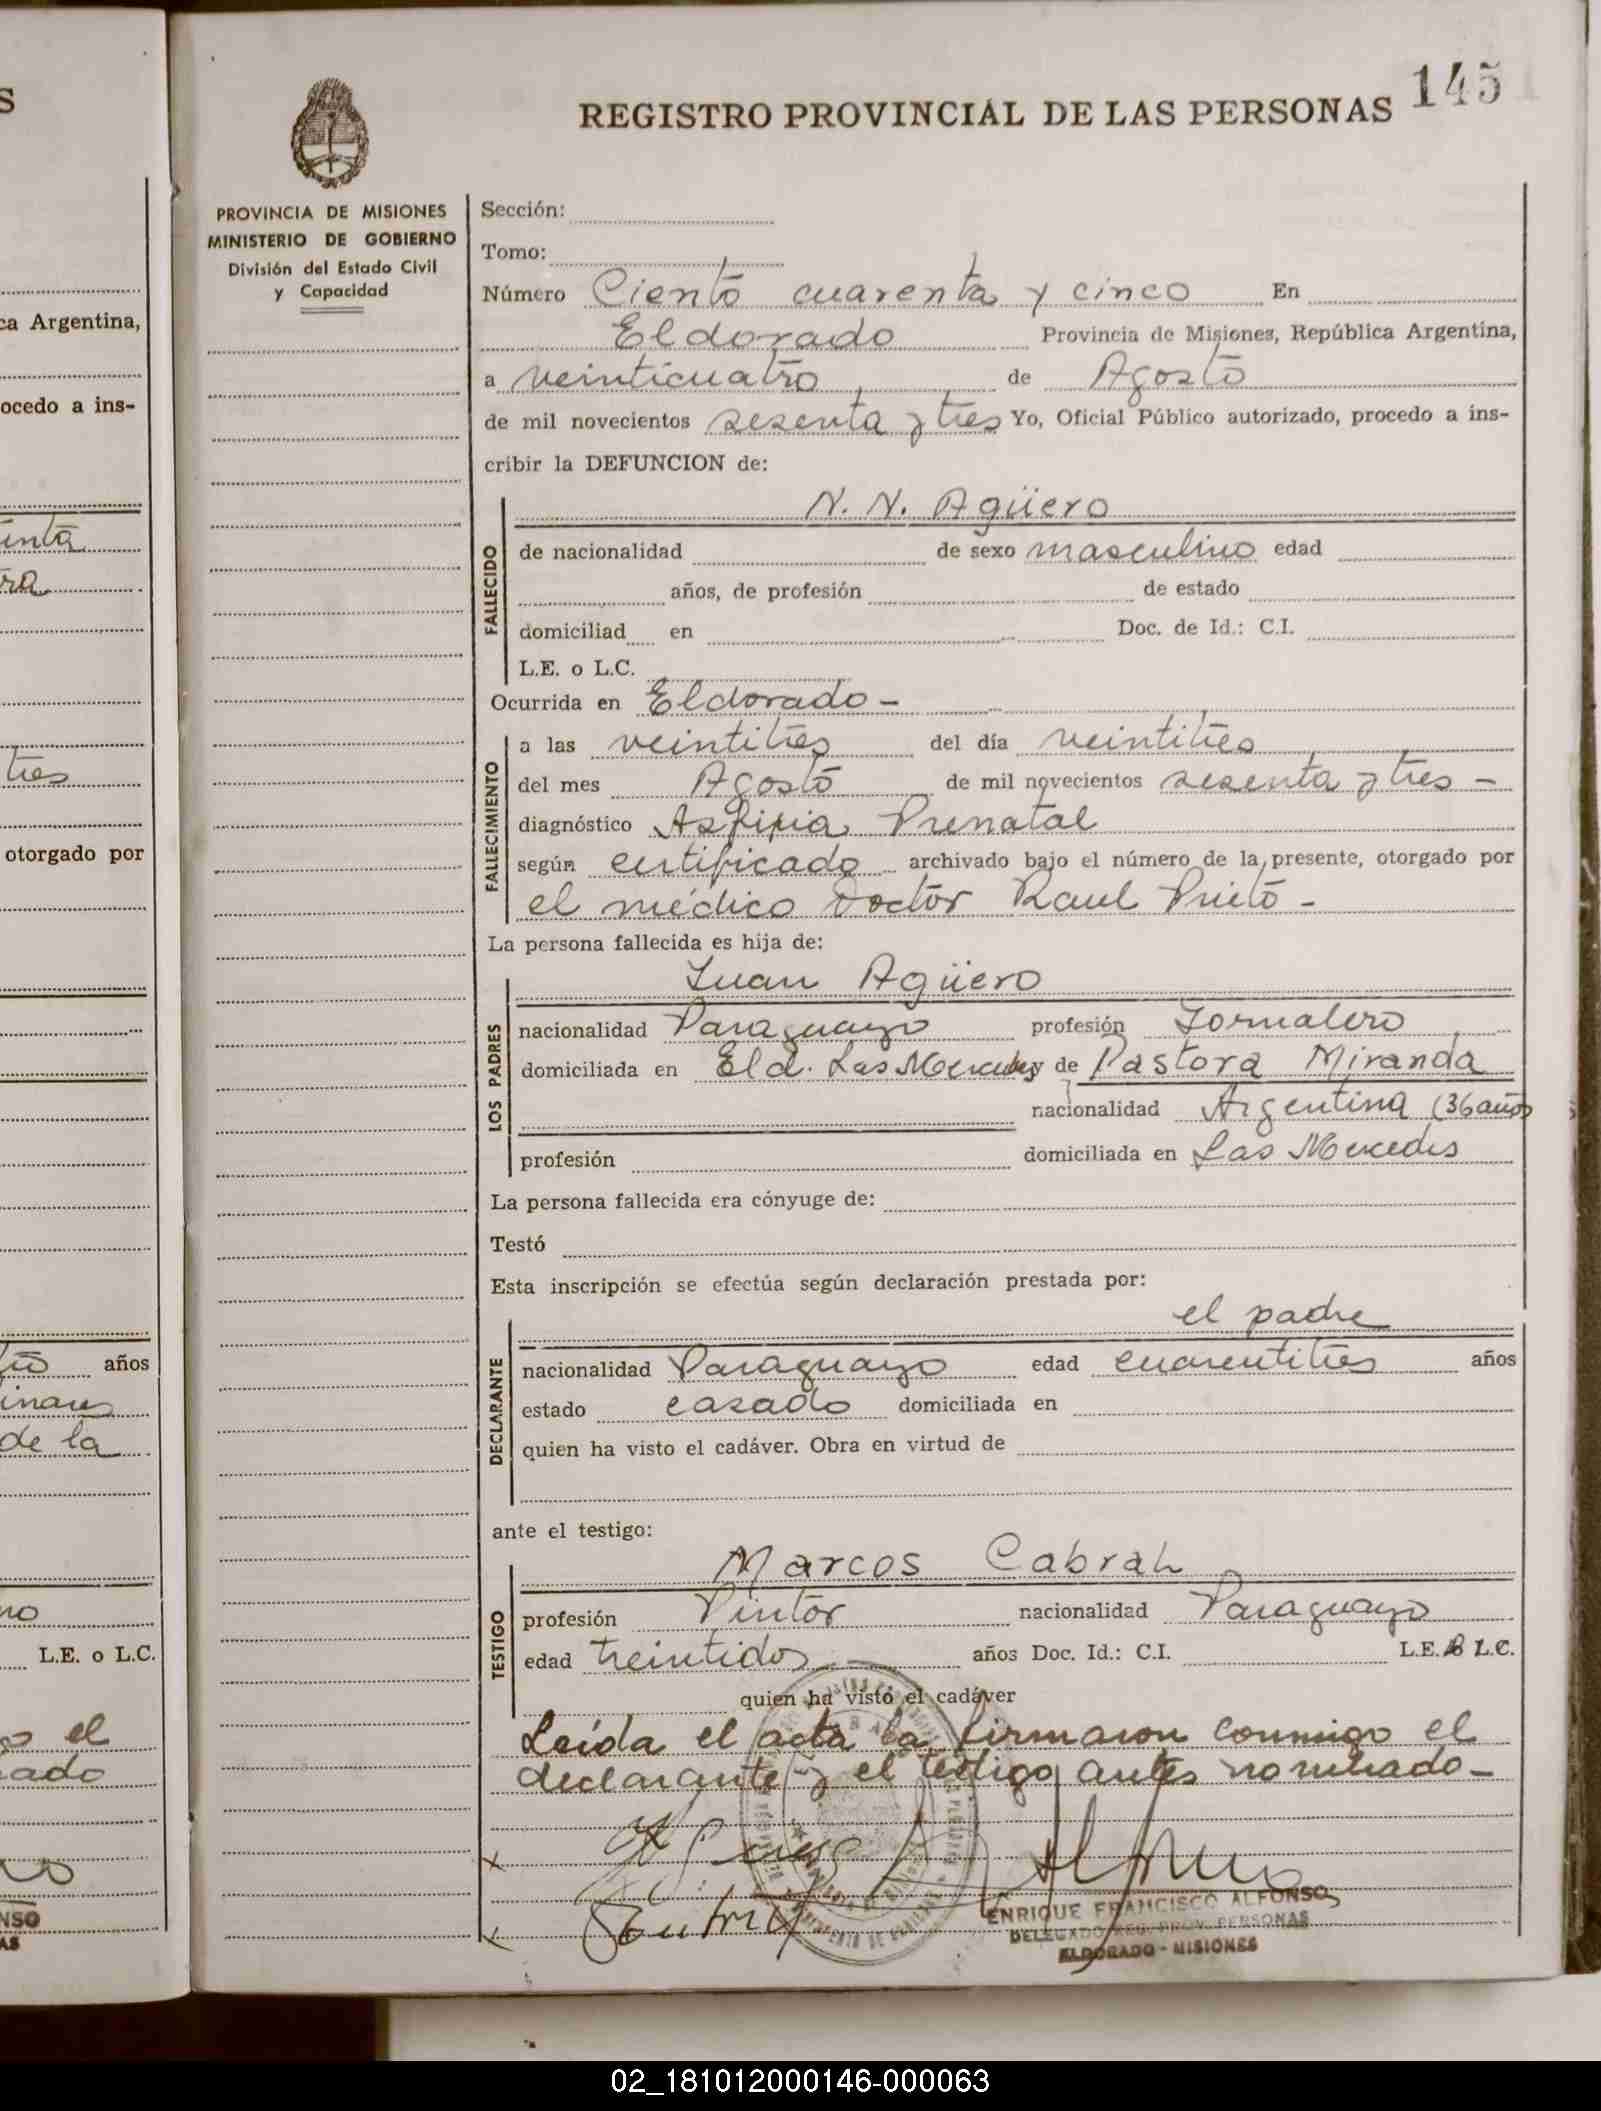 S
ca Argentina,
ocedo a ins-
tres
otorgado por
años
de la
L.E. o L.C.
el
NSO
AS
145
REGISTRO PROVINCIAL DE LAS PERSONAS
PROVINCIA DE MISIONES
MINISTERIO DE GOBIERNO
División del Estado Civil
y Capacidad
Sección:
Tomo:
Número Ciento cuarenta y cinco En
Eldorado Provincia de Misiones, República Argentina,
a veinticuatro de Agosto
de mil novecientos sesenta y tres Yo, Oficial Público autorizado, procedo a ins-
cribir la DEFUNCION de:
N. N. Agüero
FALLECIDO
de nacionalidad de sexo masculino edad
años, de profesión de estado
domiciliad en Doc. de Id.: C.I.
L.E. o L.C.
Ocurrida en Eldorado -
FALLECIMIENTO
a las veintitres del día veintitres
del mes Agosto de mil novecientos sesenta y tres -
diagnóstico Asfixia Prenatal
según certificado archivado bajo el número de la presente, otorgado por
el médico Doctor Raul Prieto -
La persona fallecida es hija de:
Juan Agüero
LOS PADRES
nacionalidad Paraguayo profesión Jornalero
domiciliada en Eld. Las Mercedes y de Pastora Miranda
nacionalidad Argentina (36 años)
profesión domiciliada en Las Mercedes
La persona fallecida era cónyuge de:
Testó
Esta inscripción se efectúa según declaración prestada por:
el padre
DECLARANTE
nacionalidad Paraguayo edad cuarentitres años
estado casado domiciliada en
quien ha visto el cadáver. Obra en virtud de
ante el testigo:
Marcos Cabral
TESTIGO
profesión Pintor nacionalidad Paraguayo
edad treintidos años Doc. Id.: C.I. L.E. L.C.
quien ha visto el cadáver
Leída el acta la firmaron conmigo el
declarante y el testigo antes nombrado -
ENRIQUE FRANCISCO ALFONSO
DELEGADO REG. PROV. PERSONAS
ELDORADO - MISIONES
02_181012000146-000063